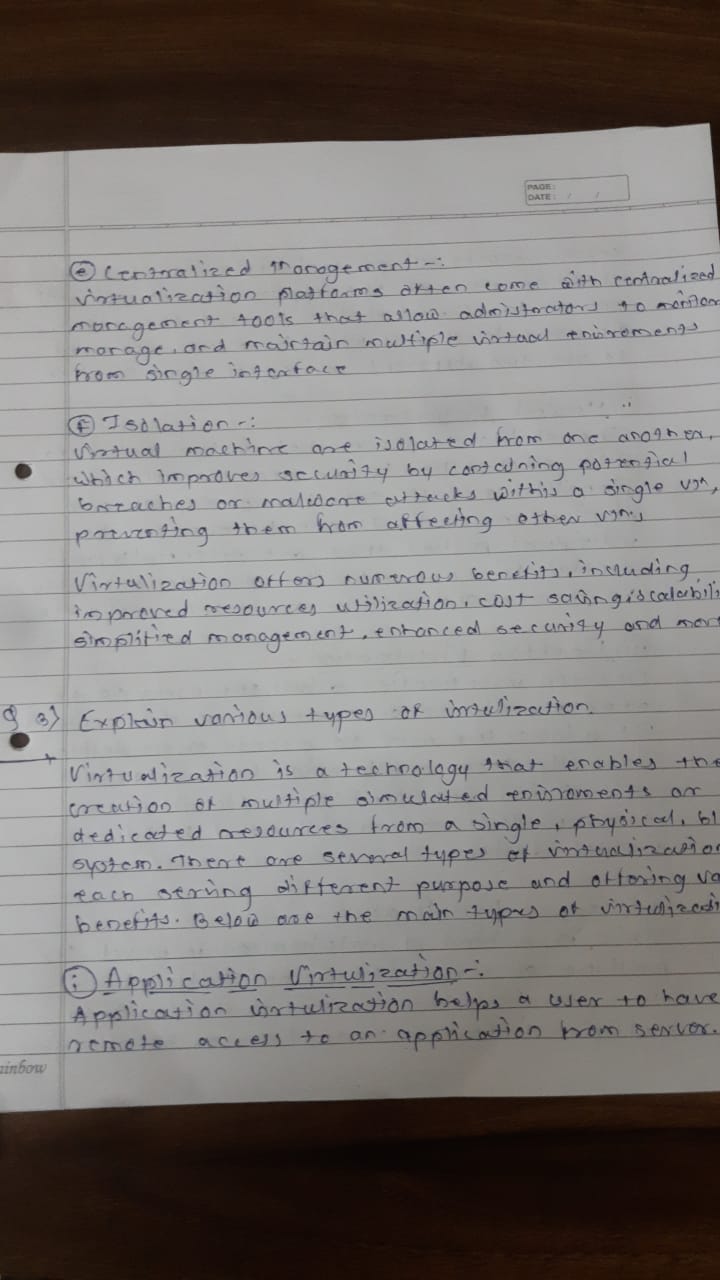 PAGE:
DATE: / /
(e) Centralized management -:
virtualization platforms often come with centralized
management tools that allow admistrators to monitor
manage, and maintain multiple virtual enviroments
from single interface
(f) Isolation -:
Virtual machine are isolated from one another,
which improves security by containing potential
breaches or malware attacks within a single vm,
preventing them from affecting other vms
Virtulization offers numerous benefits, including
improved resources utilization, cost saving, scalabili
simplified management, enhanced security and mor
Q 3) Explain various types of virtulization.
Virtualization is a technology that enables the
creation of multiple simulated enviroments or
dedicated resources from a single, physical,
system. There are several types of virtualization
each serving different purpose and offering va
benefits. Below are the main types of virtulizati
(i) Application Virtulization -:
Application virtulization helps a user to have
remote access to an application from server.
ainbow